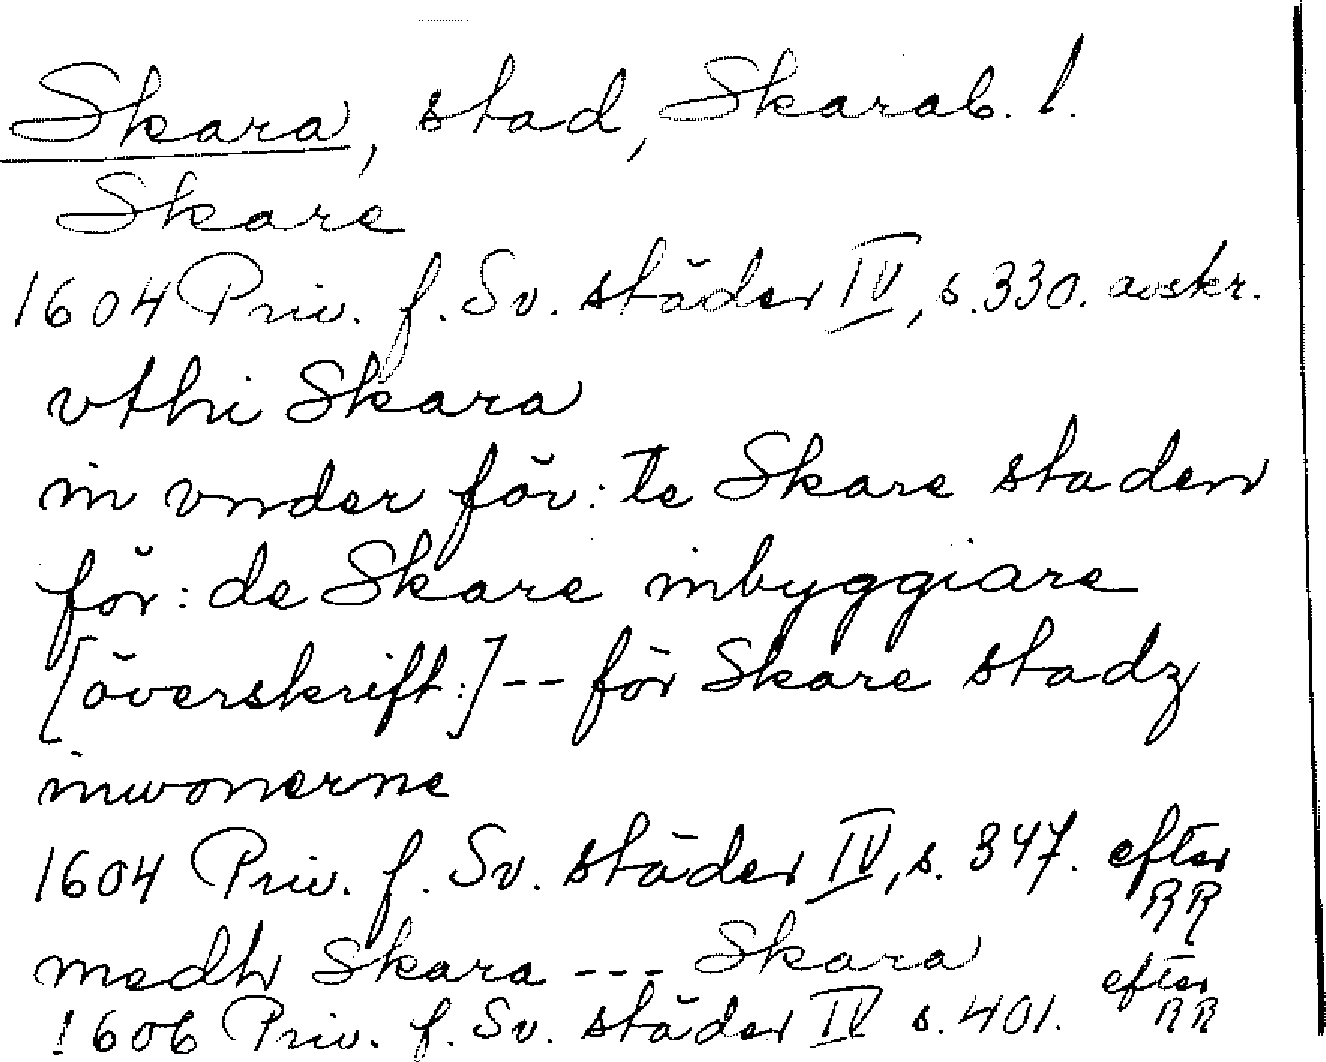 Skara, stad, Skarab. l.
Skare
1604 Priv. f. Sv. städer IV, s. 330. avskr.
vthi Skara
in vnder för: te Skare staden
för: de Skare inbyggiare
[överskrift:] -- för Skare stadz
inwonerne
1604 Priv. f. Sv. städer IV, s. 347. efter RR
medh Skara --- Skara
1606 Priv. f. Sv. städer IV s. 401. efter RR